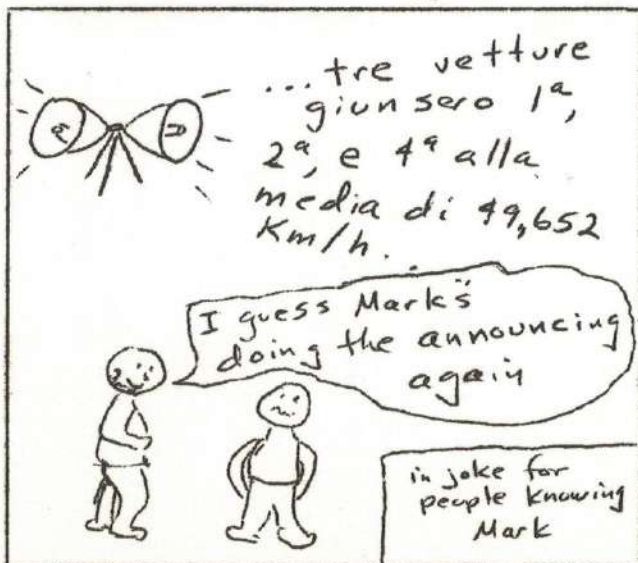 ...tre vetture
giunsero 1ª,
2ª, e 4ª alla
media di 49,652
Km/h.
I guess Mark's
doing the announcing
again
in joke for
people knowing
Mark